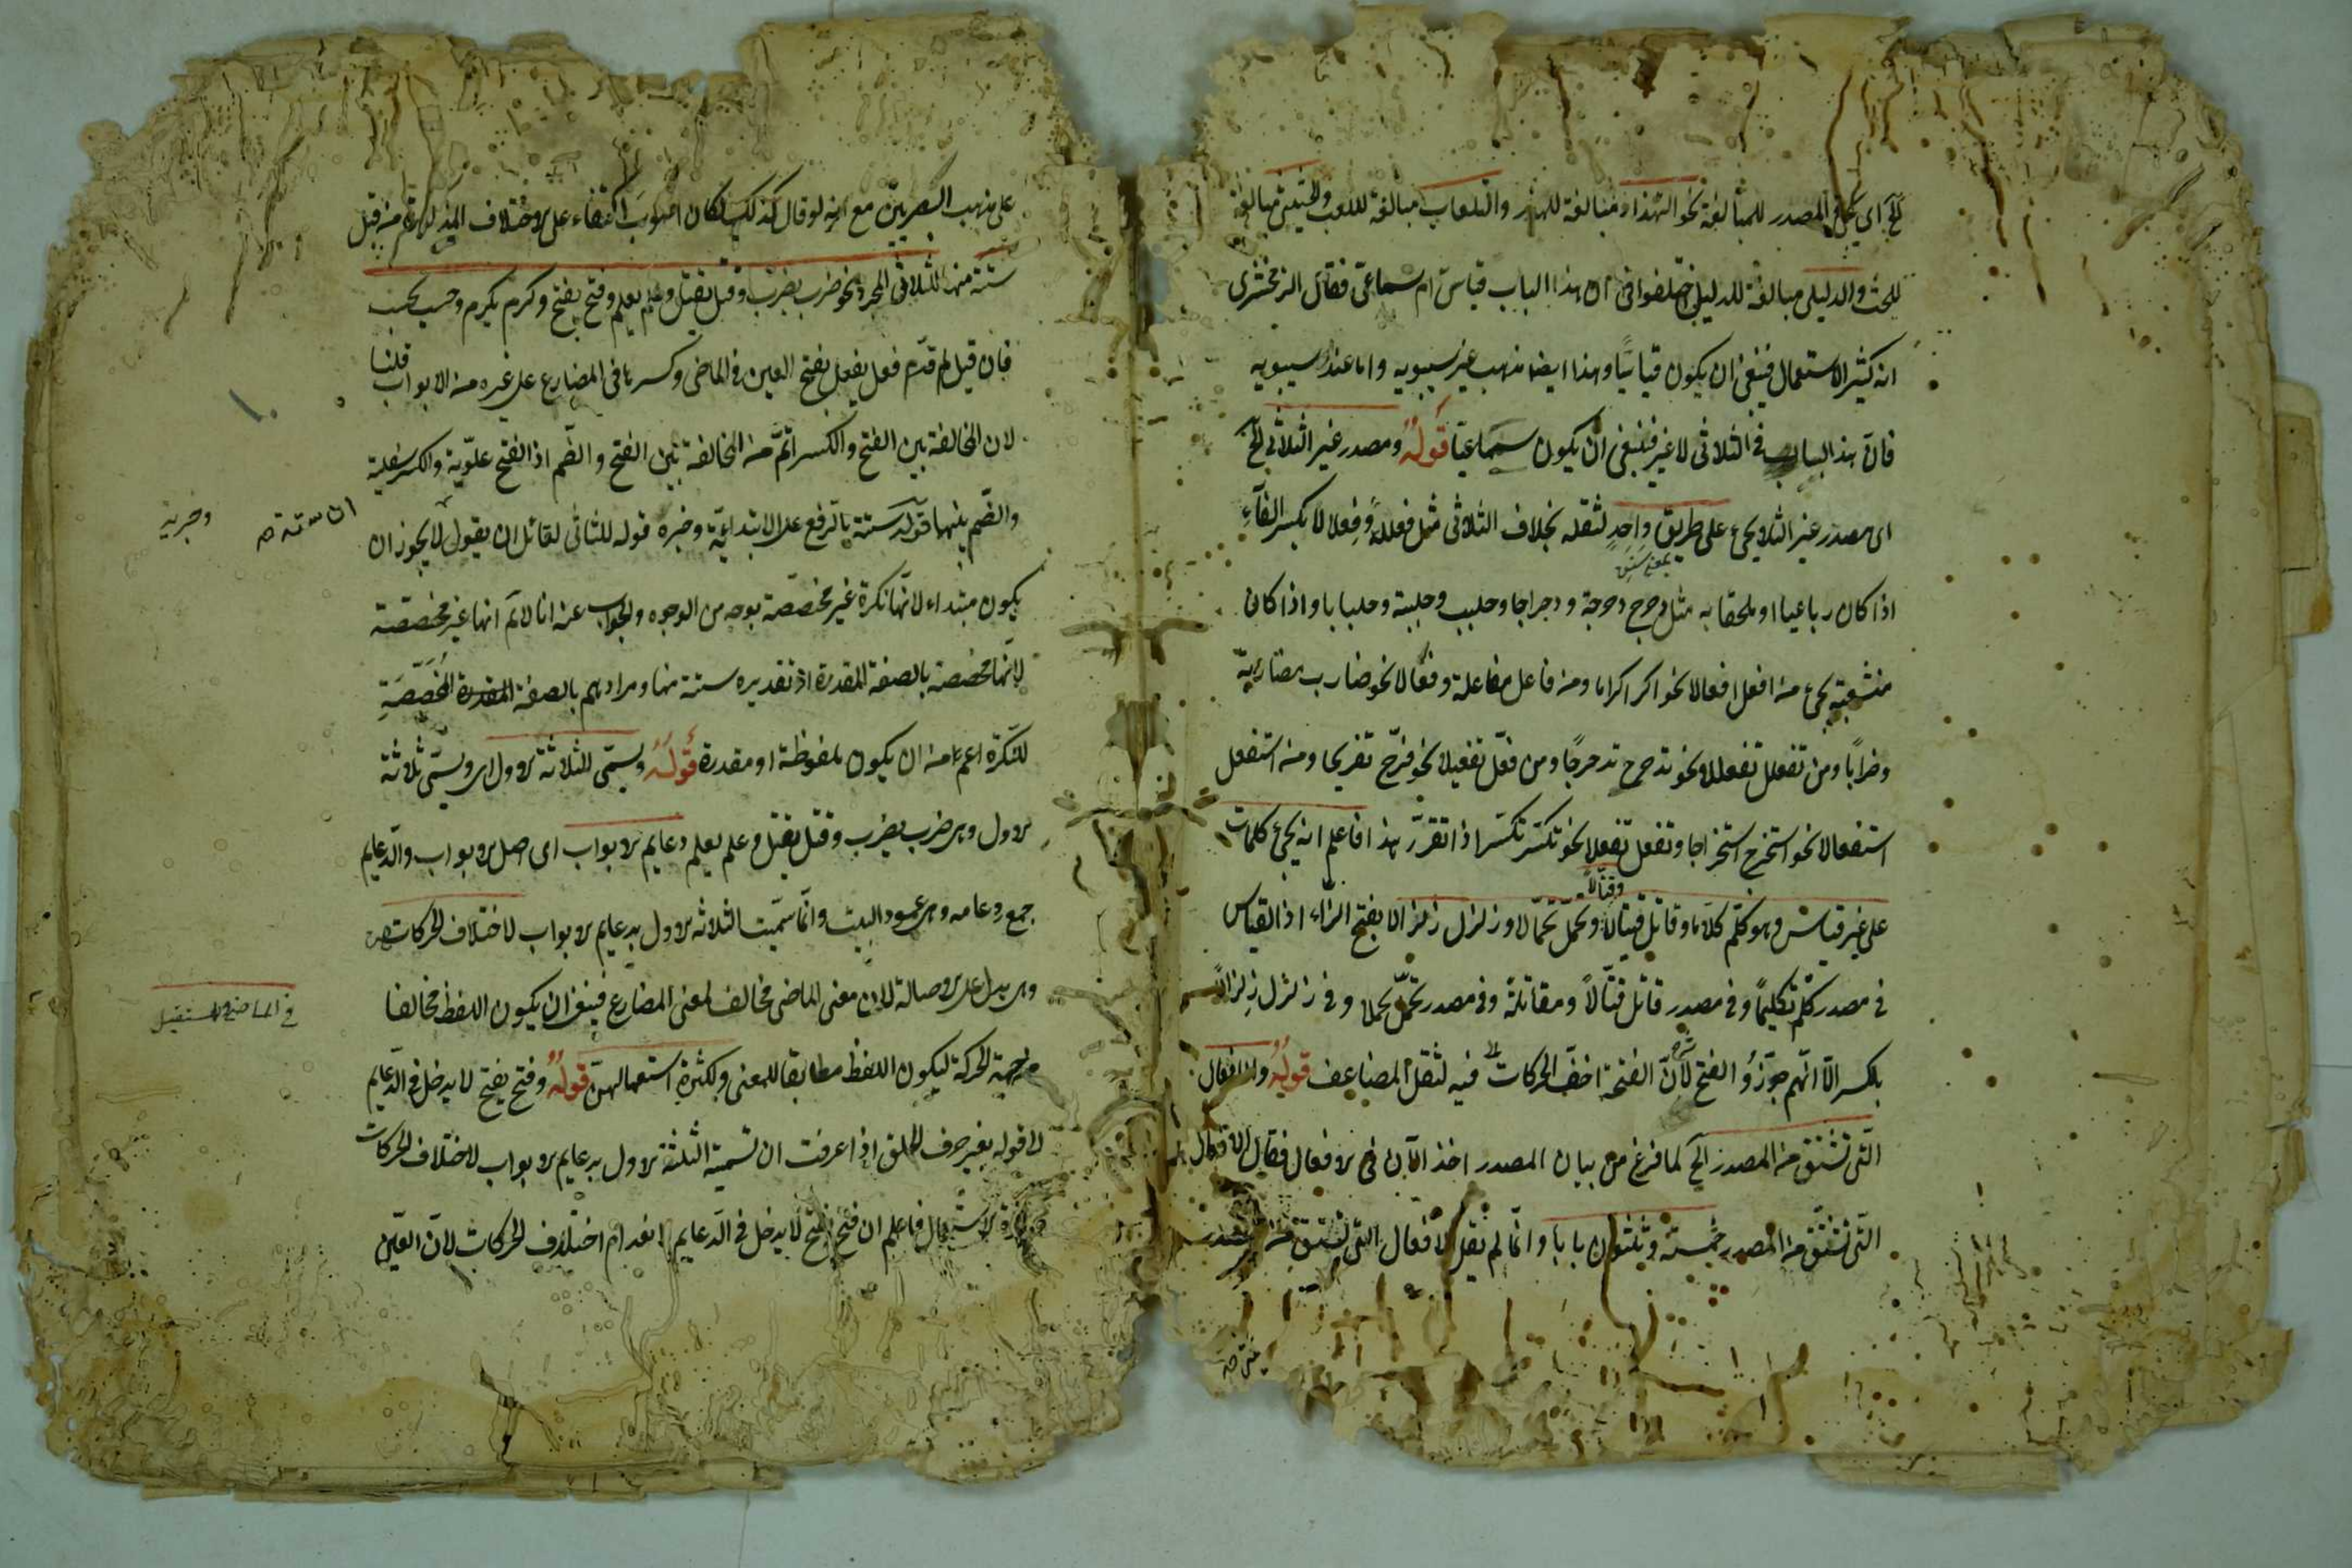 الخ اى يجئ المصدر للمبالغة نحو التهذار مبالغة للهذر والتلعاب مبالغة للعب والحثيثى مبالغة
للحث والدليلى مبالغة للدليل اختلفوا فى ان هذا الباب قياس ام سماعى فقال الزمخشرى
انه كثير الاستعمال فينبغى ان يكون قياسيًا وهذا ايضا مذهب غير سيبويه واما عند سيبويه
فان هذا الباب فى الثلاثى لا غير فينبغى ان يكون سماعيًا قوله ومصدر غير الثلاثى الخ
اى مصدر غير الثلا يجئ على طريق واحد لثقله بخلاف الثلاثى مثل فعللة وفعلالا بكسر الفاء
بمعنى سنن
اذا كان رباعيا او ملحقا به مثل دحرج دحرجة ودحراجا وجلبب وجلببة وجلبابا واذا كان
منشعبة يجئ من افعل افعالا نحو اكرم اكراما ومن فاعل مفاعلة وفعالا نحو ضارب مضاربة
وضرابًا ومن تفعلل تفعللا نحو تدحرج تدحرجًا ومن فعّل تفعيلا نحو فرّح تفريحا ومن استفعل
استفعالا نحو استخرج استخراجا وتفعل تفعلا نحو تكسر تكسرا اذا تقرر هذا فاعلم انه يجئ كلمات
على غير قياس وهو كلّم كلاما وقاتل قيتالا وتحمل تحمالا وزلزل زلزالا بفتح الزاء اذ القياس
وقتالا
فى مصدر كلّم تكليمًا وفى مصدر قاتل قتالًا ومقاتلة وفى مصدر تحمّل تحملا وفى زلزل زلزالًا
بكسر الا انهم جوّزوا الفتح لان الفتحة اخف الحركات فيه لثقل المضاعف قوله والافعال
التى تشتق من المصدر الخ لما فرغ من بيان المصدر اخذ الآن فى الافعال فقال الافعال
التى تشتق من المصدر خمسة وثلثون بابا وانما لم يقل الافعال التى تشتق من المصدر
على مذهب البصريين مع انه لو قال كذلك لكان اصوب اكتفاء على الاختلاف المذكور من قبل
ستة منها للثلاثى المجرد نحو ضرب يضرب وقتل يقتل وعلم يعلم وفتح يفتح وكرم يكرم وحسب يحسب
فان قيل لم قدّم فعل يفعل بفتح العين فى الماضى وكسرها فى المضارع على غيره من الابواب قلنا
لان المخالفة بين الفتح والكسر اتمّ من المخالفة بين الفتح والضم اذ الفتح علوية والكسر سفلية
والضم بينهما قوله ستة بالرفع على الابتدائية وخبره قوله للثلاثى لقائل ان يقول لا يجوز ان
ان ستة
وخبرية
يكون مبتداء لانها نكرة غير مخصصة بوجه من الوجوه والجواب عنه انا لانم انها غير مخصصة
لانها مخصصة بالصفة المقدرة اذ تقديره ستة منها ومرادهم بالصفة المقدرة المخصصة
للنكرة اعم من ان يكون ملفوظة او مقدرة قوله ويسمى الثلاثة الاول اى ويسمى ثلاثة
الاول وهى ضرب يضرب وقتل يقتل وعلم يعلم دعايم الابواب اى اصل الابواب والدعايم
جمع دعامة وهى عمود البيت وانما سميت الثلاثة الاول بدعايم الابواب لاختلاف الحركات
فى الماضى والمستقبل
وهى يدل على الاصالة لان معنى الماضى مخالف لمعنى المضارع فينبغى ان يكون اللفظ مخالفا
من جهة الحركة ليكون اللفظ مطابقا للمعنى ولكثرة استعمالهن قوله وفتح يفتح لا يدخل فى الدعايم
الى قوله بغير حرف الحلق اذا عرفت ان تسمية الثلثة الاول بدعايم الابواب لاختلاف الحركات
وكثرة الاستعمال فاعلم ان فتح يفتح لا يدخل فى الدعايم لانعدام اختلاف الحركات لان العين